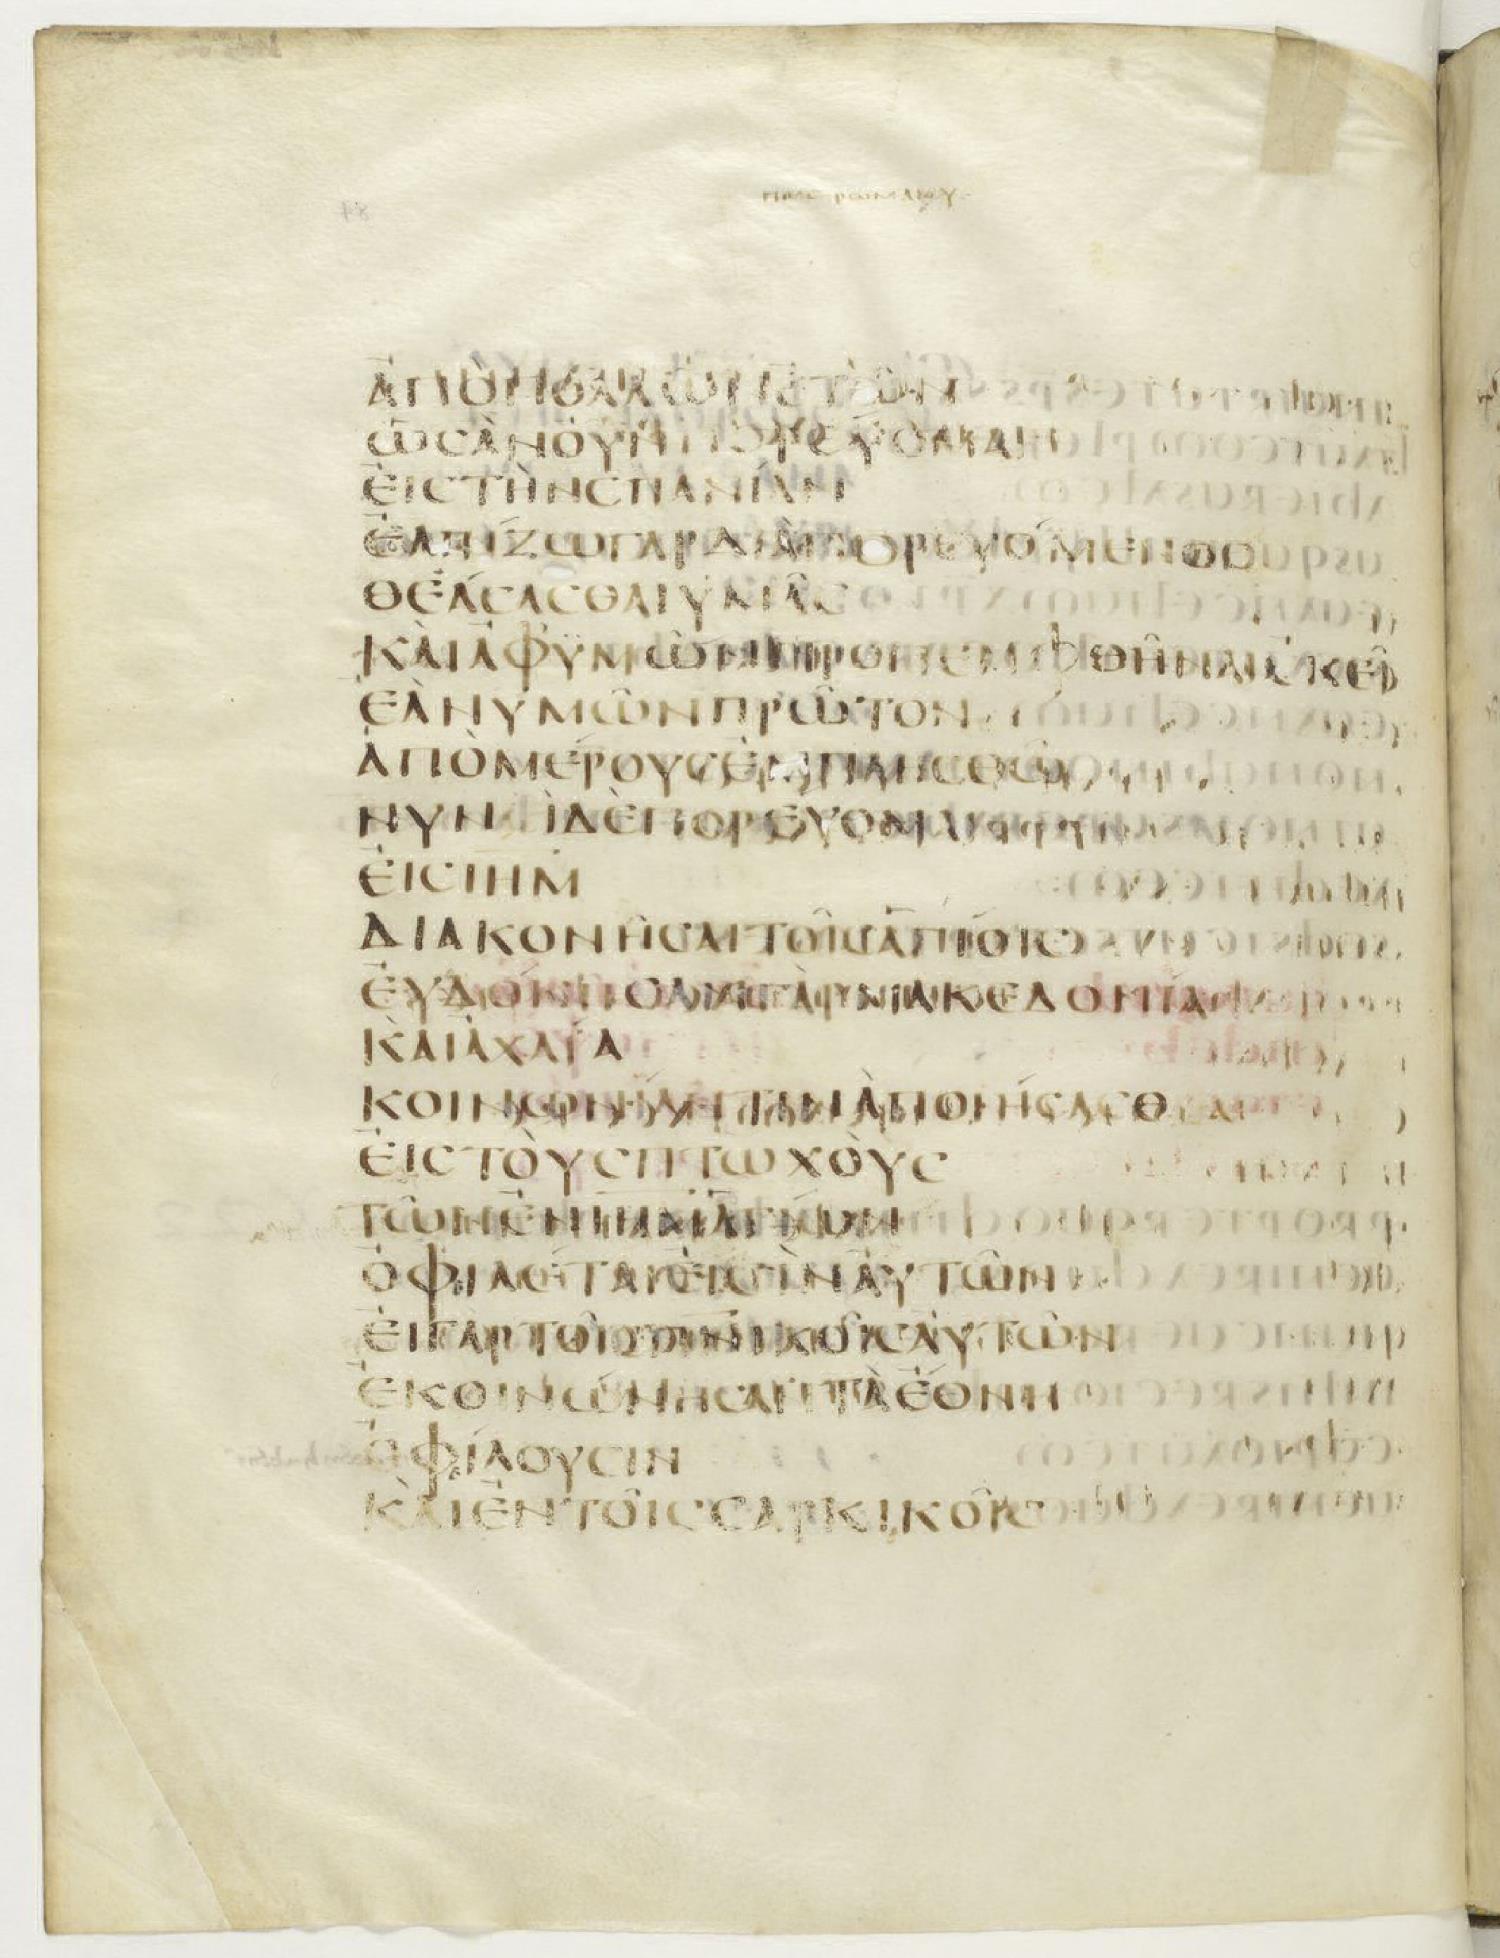 ΑΠΟΠΟΛΛΩΝΕΤΩΝ
ΩϹΑΝΟΥΝΠΟΡΕΥΟΜΑΙ
ΕΙϹΤΗΝϹΠΑΝΙΑΝ
ΕΛΠΙΖΩΓΑΡΔΙΑΠΟΡΕΥΟΜΕΝΟϹ
ΘΕΑϹΑϹΘΑΙΥΜΑϹ
ΚΑΙΑΦΥΜΩΝΠΡΟΠΕΜΦΘΗΝΑΙΕΚΕΙ
ΕΑΝΥΜΩΝΠΡΩΤΟΝ
ΑΠΟΜΕΡΟΥϹΕΜΠΛΗϹΘΩ
ΝΥΝΙΔΕΠΟΡΕΥΟΜΑΙ
ΕΙϹΙΗΜ
ΔΙΑΚΟΝΗϹΑΙΤΟΙϹΑΓΙΟΙϹ
ΕΥΔΟΚΗϹΑΝΓΑΡΜΑΚΕΔΟΝΙΑ
ΚΑΙΑΧΑΙΑ
ΚΟΙΝΩΝΙΑΝΤΙΝΑΠΟΙΗϹΑϹΘΑΙ
ΕΙϹΤΟΥϹΠΤΩΧΟΥϹ
ΤΩΝΕΝΙΗΜΑΓΙΩΝ
ΟΦΙΛΕΤΑΙΕΙϹΙΝΑΥΤΩΝ
ΕΙΓΑΡΤΟΙϹΠΝΙΚΟΙϹΑΥΤΩΝ
ΕΚΟΙΝΩΝΗϹΑΝΤΑΕΘΝΗ
ΟΦΙΛΟΥϹΙΝ
ΚΑΙΕΝΤΟΙϹϹΑΡΚΙΚΟΙϹ